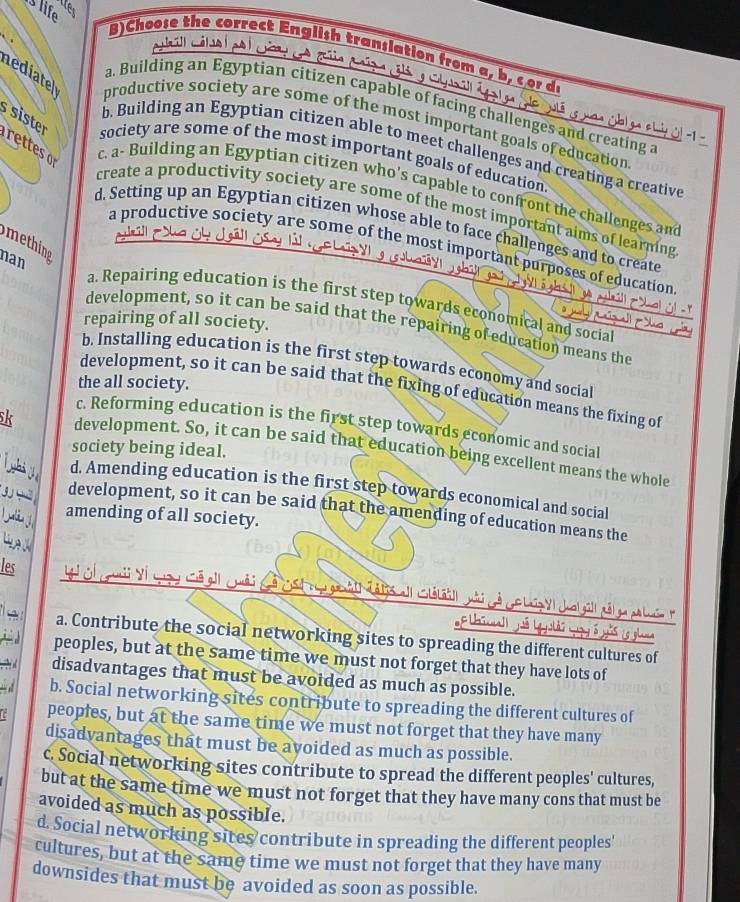 s life
ues
B)Choose the correct English translation from a, b, c or d:
١- إن بناء مواطن مصرى قادر على مواجهة التحديات و خلق مجتمع منتج هى بعض أهم أهداف التعليم
a. Building an Egyptian citizen capable of facing challenges and creating a
productive society are some of the most important goals of education.
b. Building an Egyptian citizen able to meet challenges and creating a creative
society are some of the most important goals of education.
c. a- Building an Egyptian citizen who's capable to confront the challenges and
create a productivity society are some of the most important aims of learning.
d. Setting up an Egyptian citizen whose able to face challenges and to create
a productive society are some of the most important purposes of education.
٢- إن إصلاح التعليم هو الخطوة الأولى نحو التطور الاقتصادى و الاجتماعى، لذا يمكن القول بأن صلاح التعليم
يعنى صلاح المجتمع بأسره
a. Repairing education is the first step towards economical and social
development, so it can be said that the repairing of education means the
repairing of all society.
b. Installing education is the first step towards economy and social
development, so it can be said that the fixing of education means the fixing of
the all society.
c. Reforming education is the first step towards economic and social
development. So, it can be said that education being excellent means the whole
society being ideal.
d. Amending education is the first step towards economical and social
development, so it can be said that the amending of education means the
amending of all society.
٣ تساهم مواقع التواصل الاجتماعى فى نشر الثقافات المختلفة للشعوب، لكن فى نفس الوقت يجب ألا ننسى أن لها
مساوئ كثيرة يجب تفاديها قدر المستطاع.
a. Contribute the social networking sites to spreading the different cultures of
peoples, but at the same time we must not forget that they have lots of
disadvantages that must be avoided as much as possible.
b. Social networking sites contribute to spreading the different cultures of
peoples, but at the same time we must not forget that they have many
disadvantages that must be avoided as much as possible.
c. Social networking sites contribute to spread the different peoples' cultures,
but at the same time we must not forget that they have many cons that must be
avoided as much as possible.
d. Social networking sites contribute in spreading the different peoples'
cultures, but at the same time we must not forget that they have many
downsides that must be avoided as soon as possible.
mediately
s sister
arettes or
omething
nan
sk
les
Mr Ahmed A.Rasoul